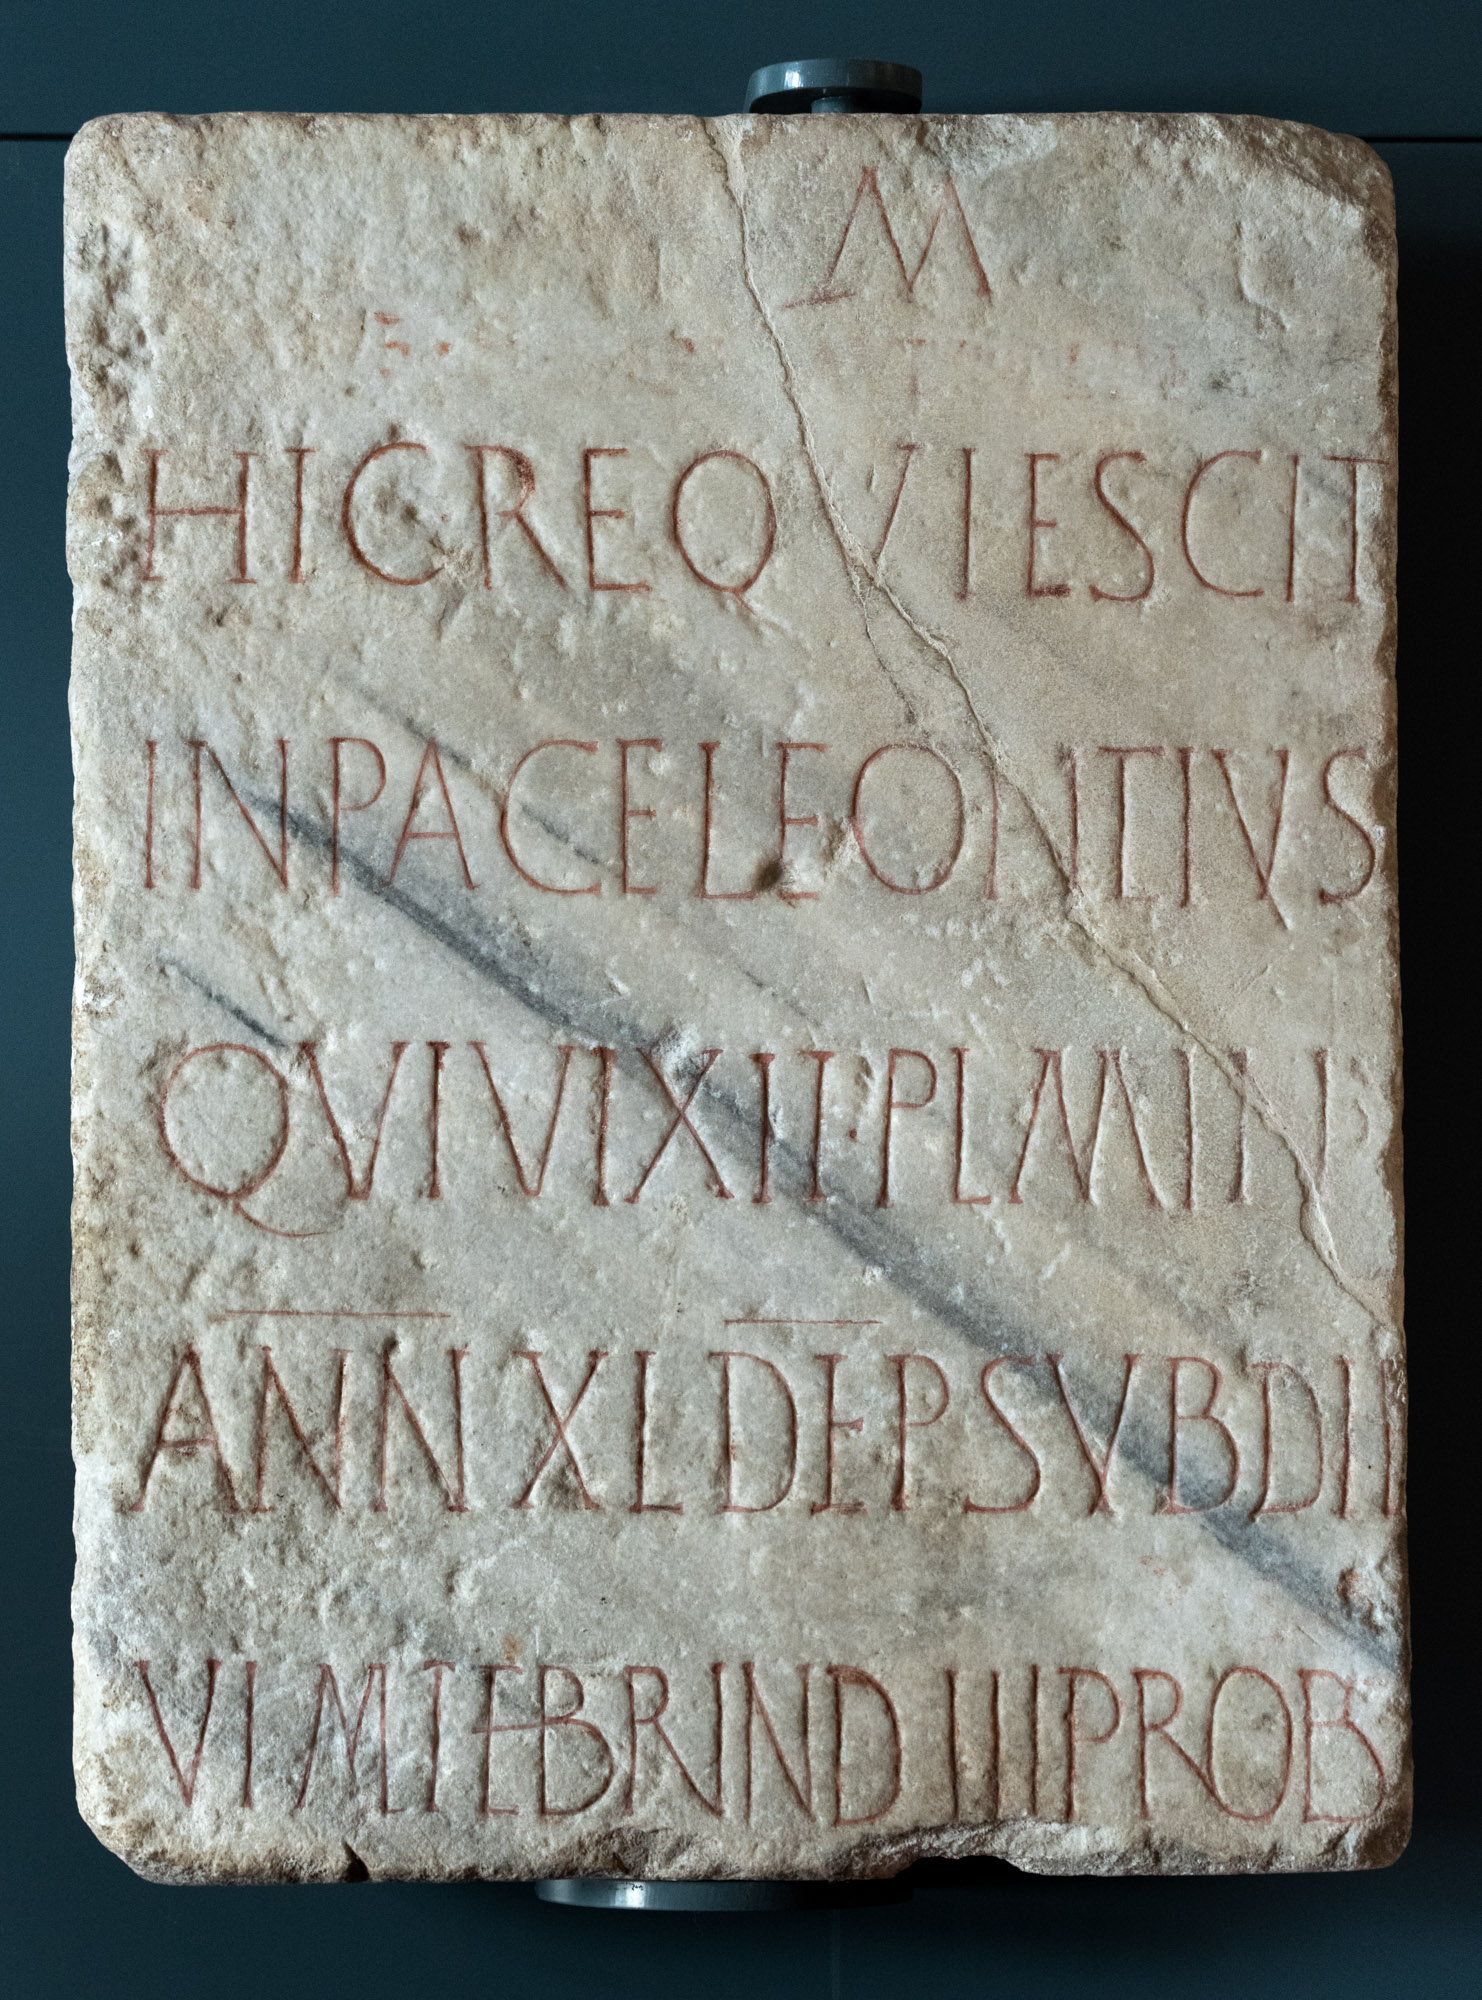 M
HIC REQVIESCIT
IN PACE LEONTIVS
QVI VIXIT PL MIN
ANN XL DEP SVB DI
VI MLTEBR IND III PROB